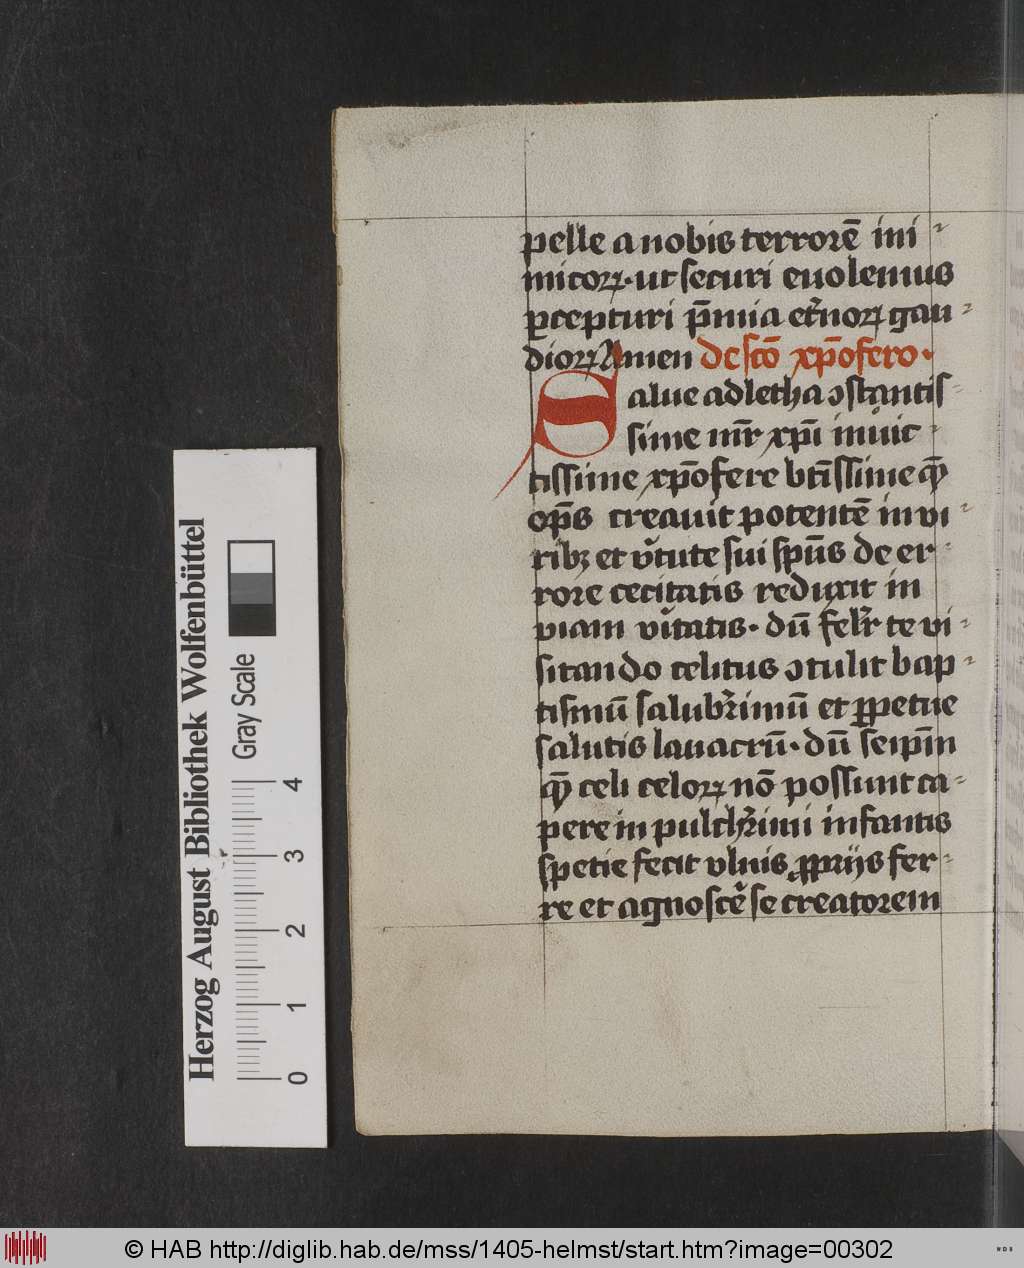 pelle a nobis terrorē ini-
micoꝝ·ut securi euolemus
ꝑcepturi p̄mia et̾noꝝ gau-
dioꝝ Amen de sc̄o xp̄ofero·
Salue adletha ꝯstantis-
sime mr̄ xp̄i inuic-
tissime xp̄ofere bt̄issime qē
op̄s creauit potentē in vi-
ribꝫ et v̾tute sui sp̄us de er-
rore cecitatis reduxit in
viam v̾itatis· dū felr̄ te vi-
sitando celitus ꝯtulit bap-
tismū salub̾rimū et ꝑpetue
salutis lauacrū· dū seip̄m
qē celi celoꝝ nō possunt ca-
pere in pulch̾rimi infantis
spetie fecit vlnis ꝓprijs fer-
re et agnoscē̾ se creatorem
Herzog August Bibliothek Wolfenbüttel
Gray Scale
0 1 2 3 4
© HAB http://diglib.hab.de/mss/1405-helmst/start.htm?image=00302